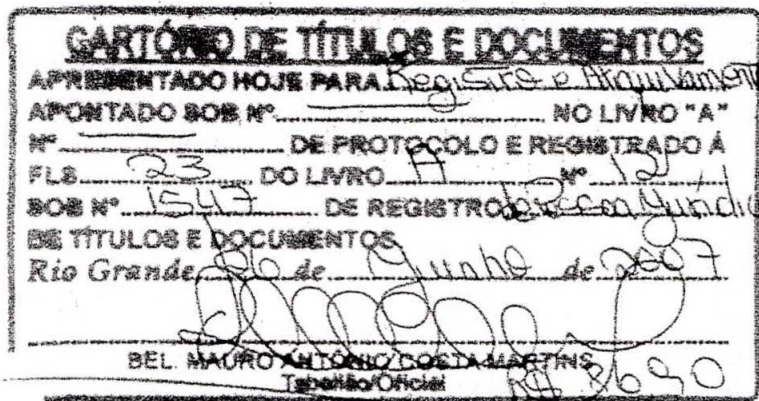 CARTÓRIO DE TÍTULOS E DOCUMENTOS
APRESENTADO HOJE PARA Registro e Arquivamento
APONTADO SOB Nº NO LIVRO "A"
Nº DE PROTOCOLO E REGISTRADO Á
FLS 23 DO LIVRO A Nº 12
SOB Nº 1547 DE REGISTRO
DE TÍTULOS E DOCUMENTOS
Rio Grande 26 de Junho de 2007
BEL. MAURO ANTÔNIO COSTA MARTINS
Tabelião/Oficial
R$ 36,90